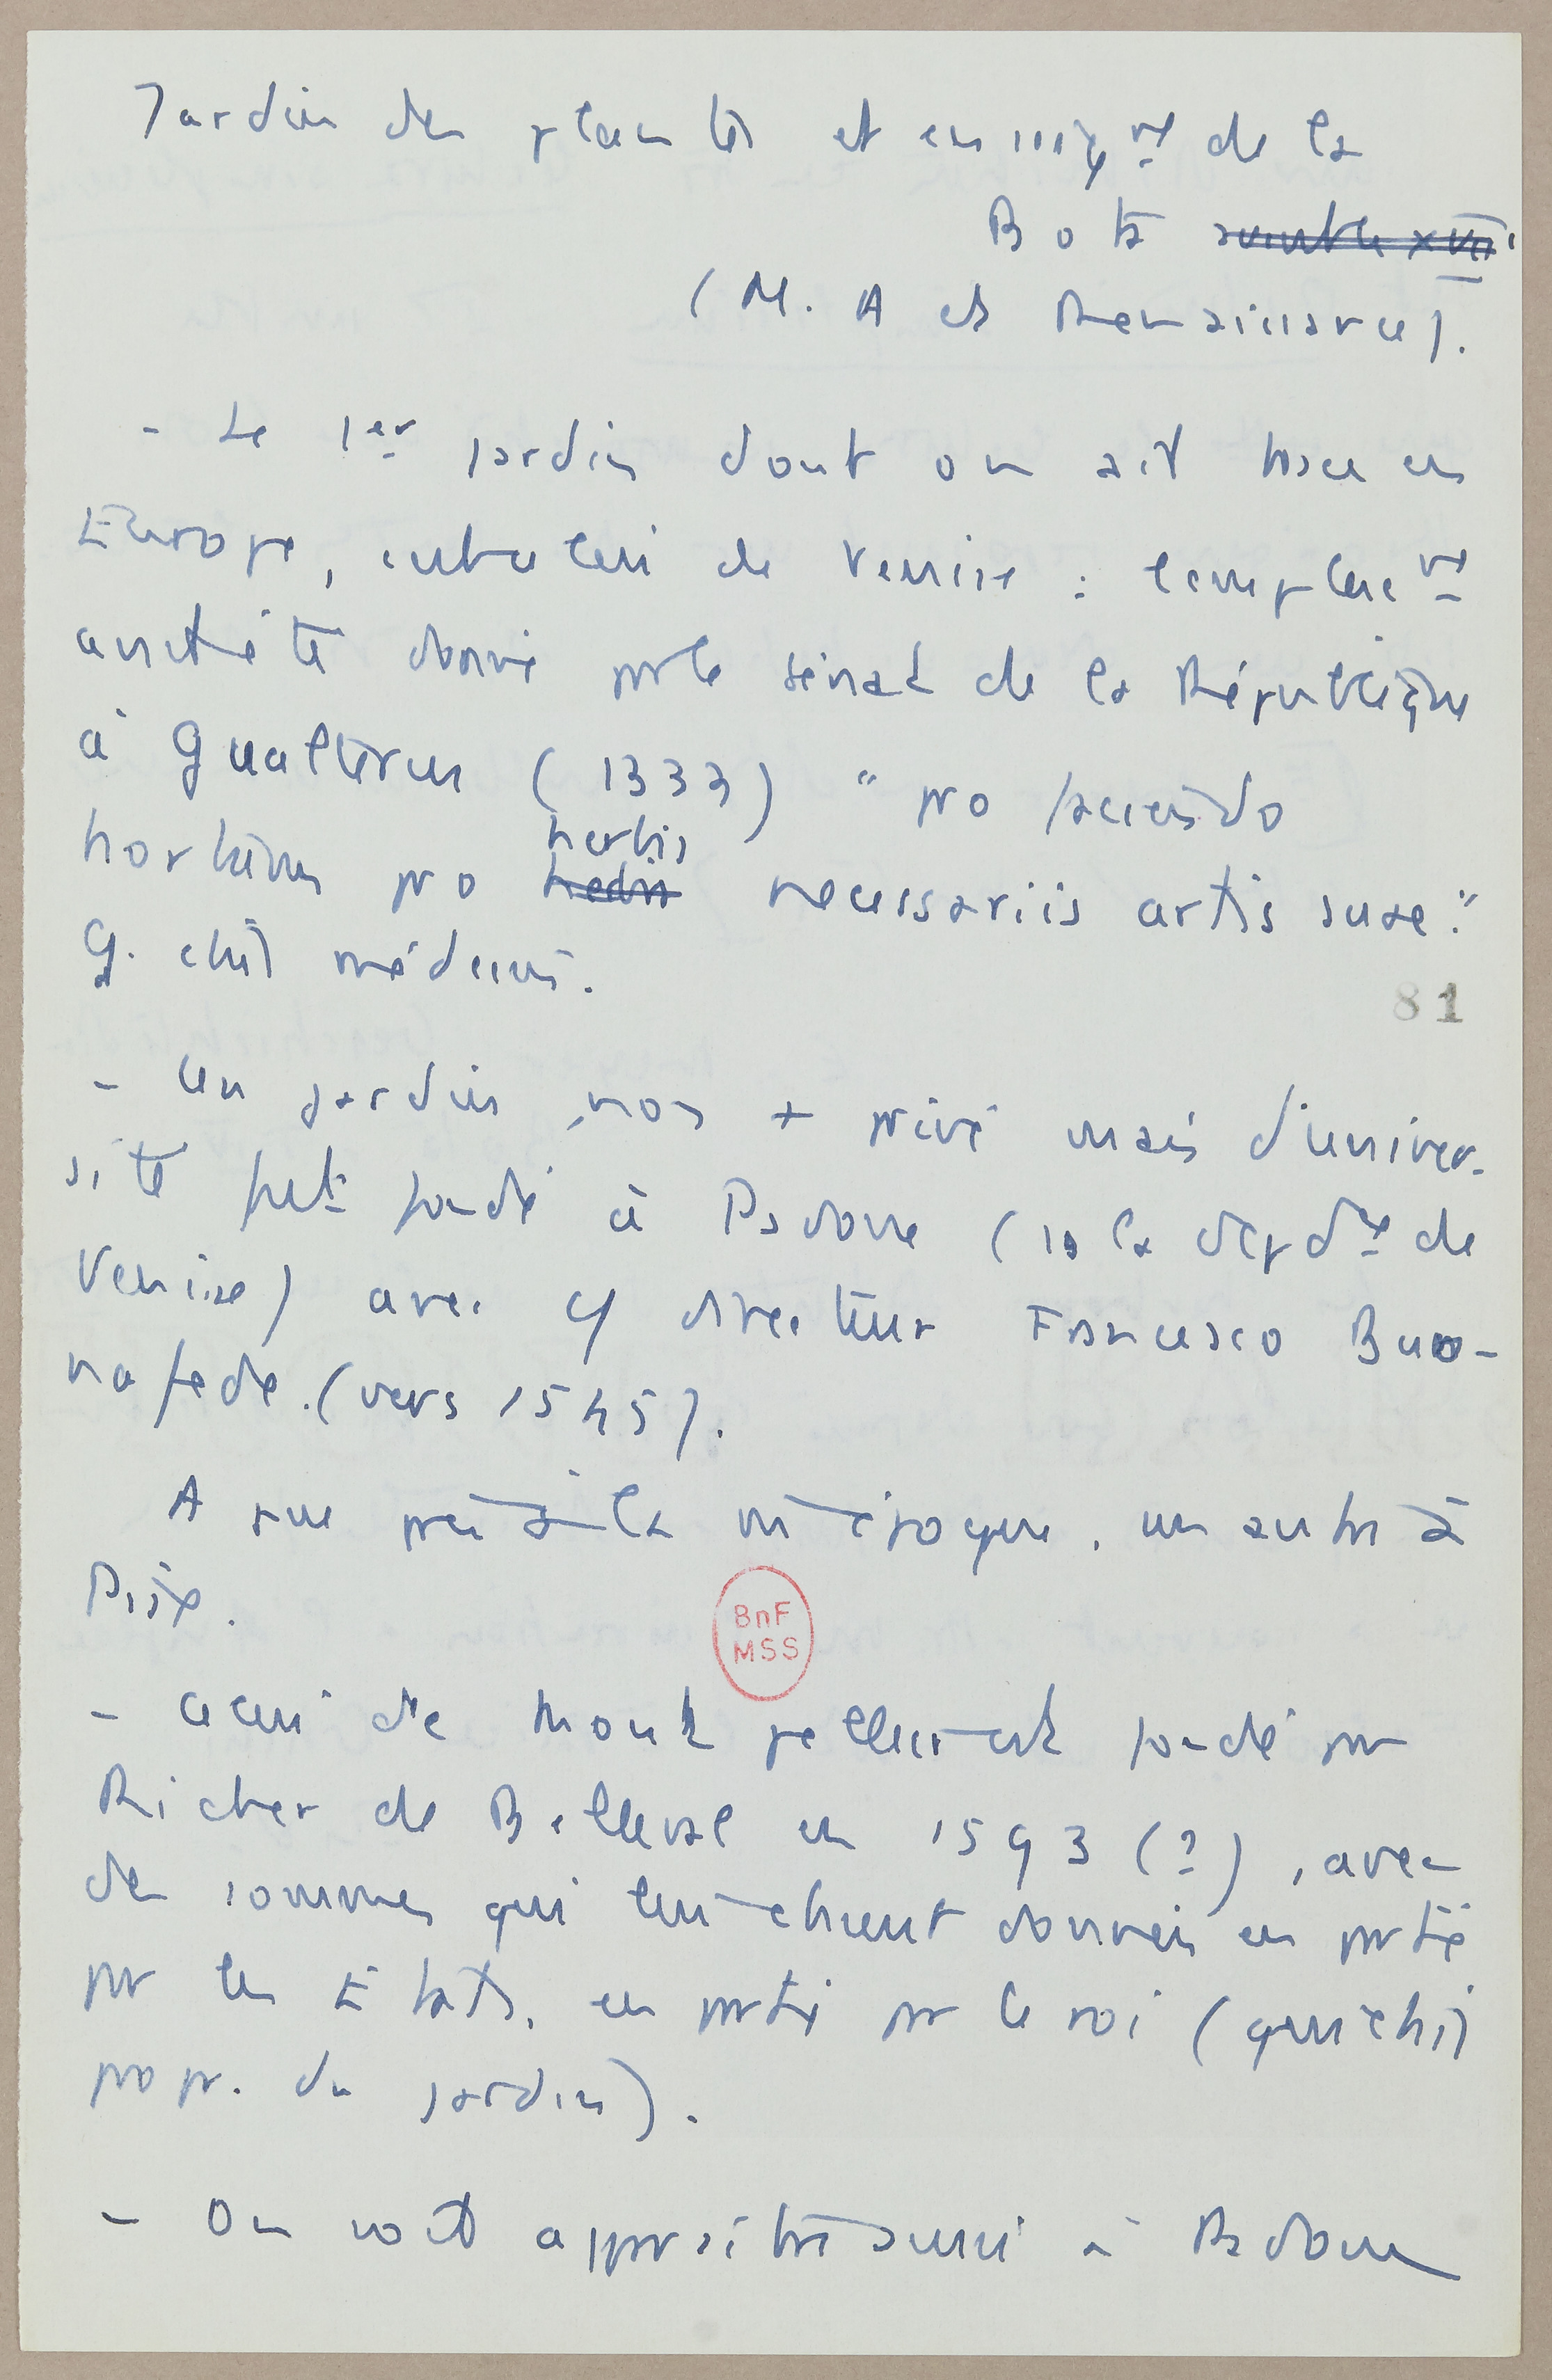 Jardin des plantes et enseignt de la
Bota avant le XVIIe
(M. A et Renaissance).
- Le 1er jardin dont on ait trace en
Europe, celui de Venise : l'emplact
a été donné pr le sénat de la République
à Gualterus (1333) " pro faciendo
hortum pro herbis necessariis artis suae."
G. était médecin.
81
- Un jardin, non + privé mais d'univer-
sité fut fondé à Padoue (ds la dépdce de
Venise) avec directeur Francesco Buo-
nafede. (vers 1545).
A peu près à la m époque, un autre à
Pise.
BnF
MSS
- Celui de Montpellier est fondé pr
Richer de Belleval en 1593 (?), avec
des sommes qui lui étaient données en partie
pr les Etats, en partie pr le roi (qui était
propr. du jardin).
- On voit apparaître aussi à Padoue